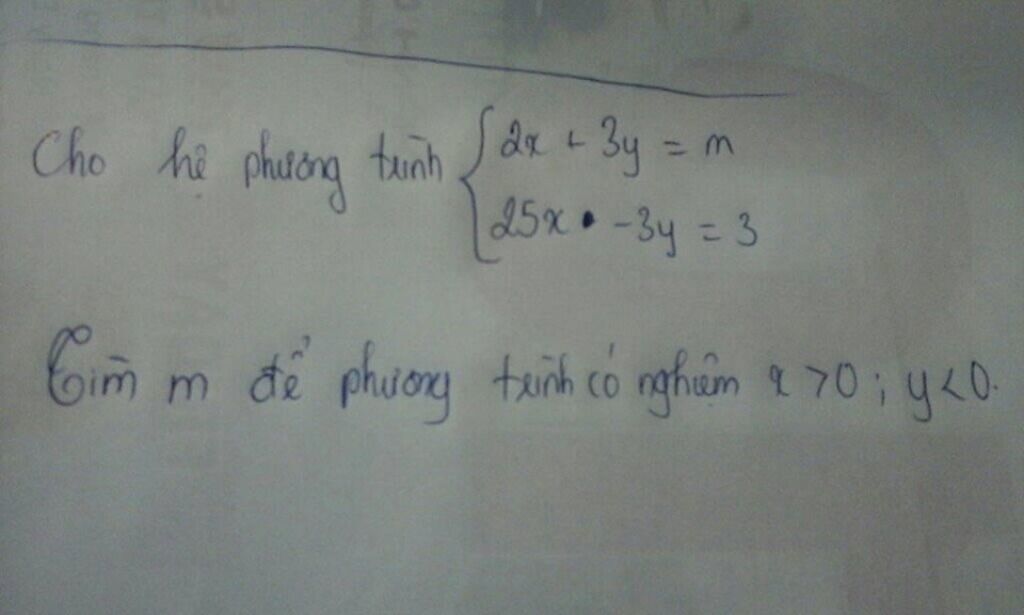 Cho hệ phương trình { 2x + 3y = m
25x - 3y = 3
Tìm m để phương trình có nghiệm x > 0 ; y < 0.